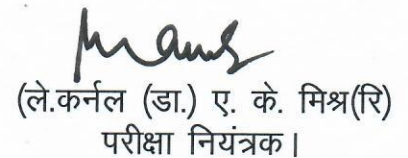 (ले.कर्नल (डा.) ए. के. मिश्र(रि)
परीक्षा नियंत्रक।